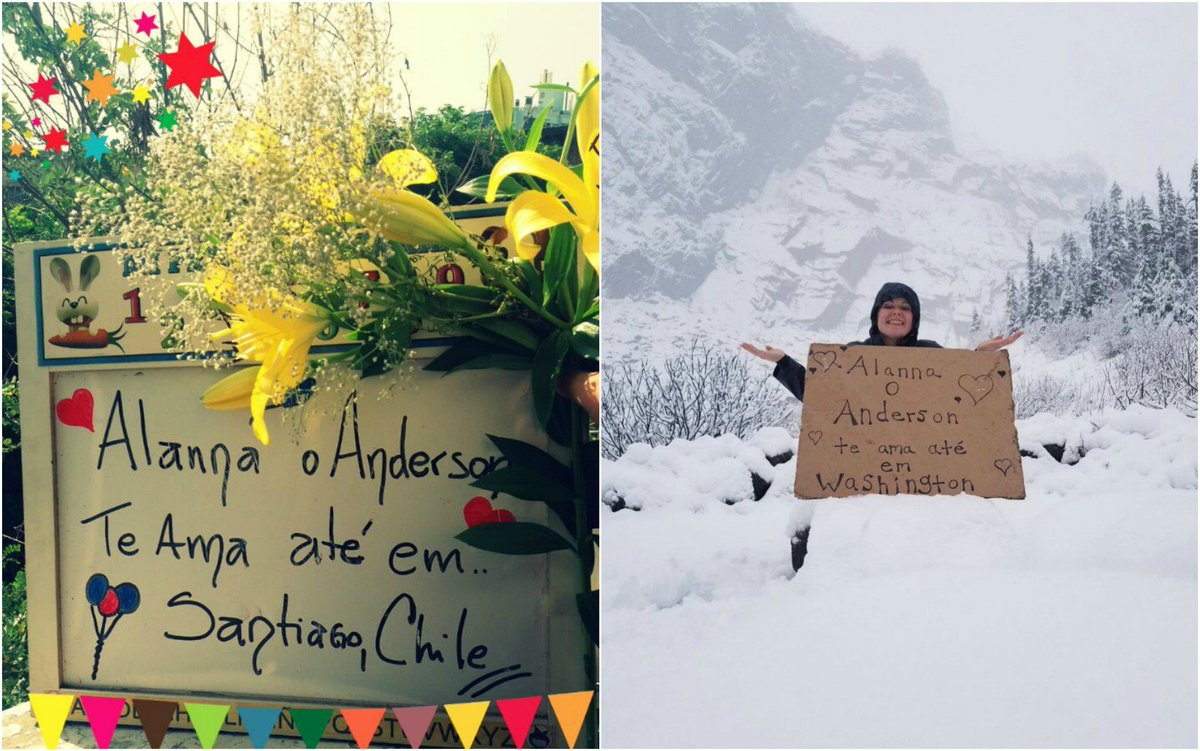 Alanna o Anderson
Te Ama até em..
Santiago, Chile
Alanna
O
Anderson
te ama até
em
Washington